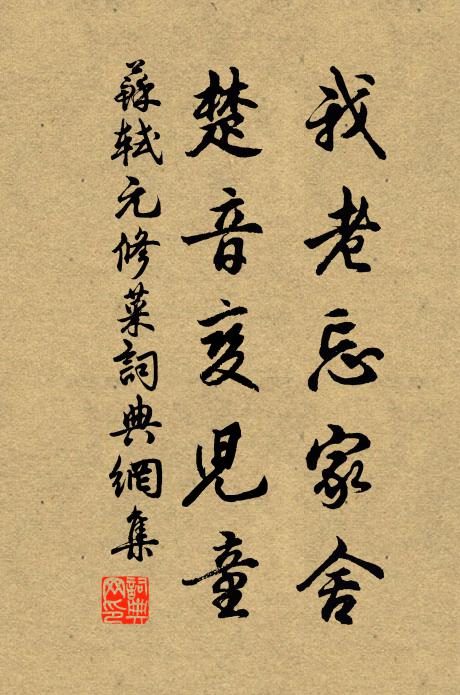 我老忘家舍
楚音变児童
蘇軾元修菜詞典網集
詞典网印